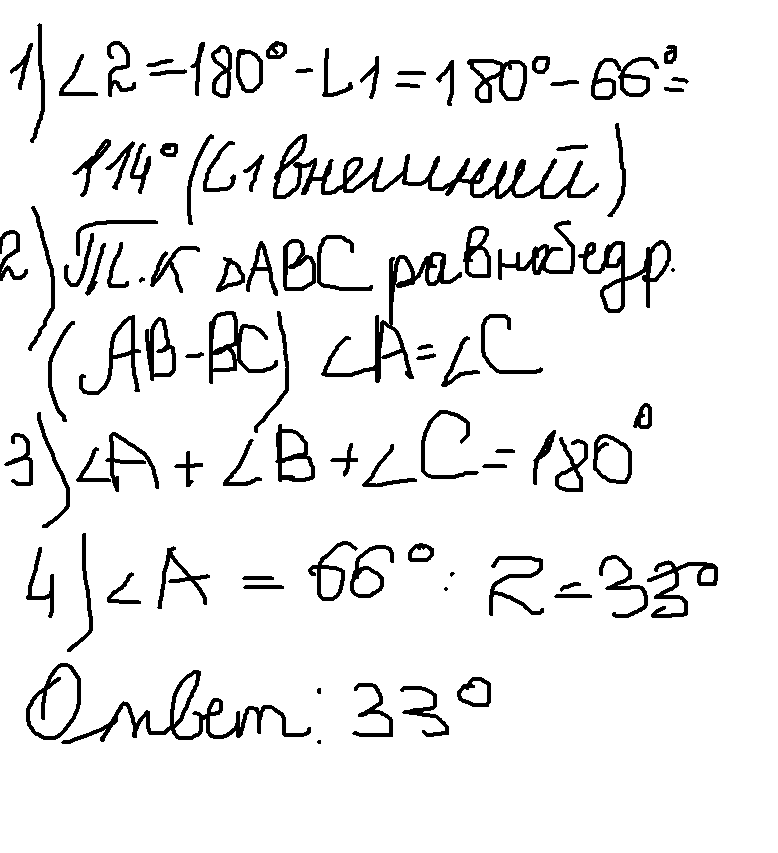 1) ∠2 = 180° - ∠1 = 180° - 66° =
114° (∠1 внешний)
2) Т.к ΔABC равнобедр.
(AB-BC) ∠A = ∠C
3) ∠A + ∠B + ∠C = 180°
4) ∠A = 66° : 2 = 33°
Ответ: 33°